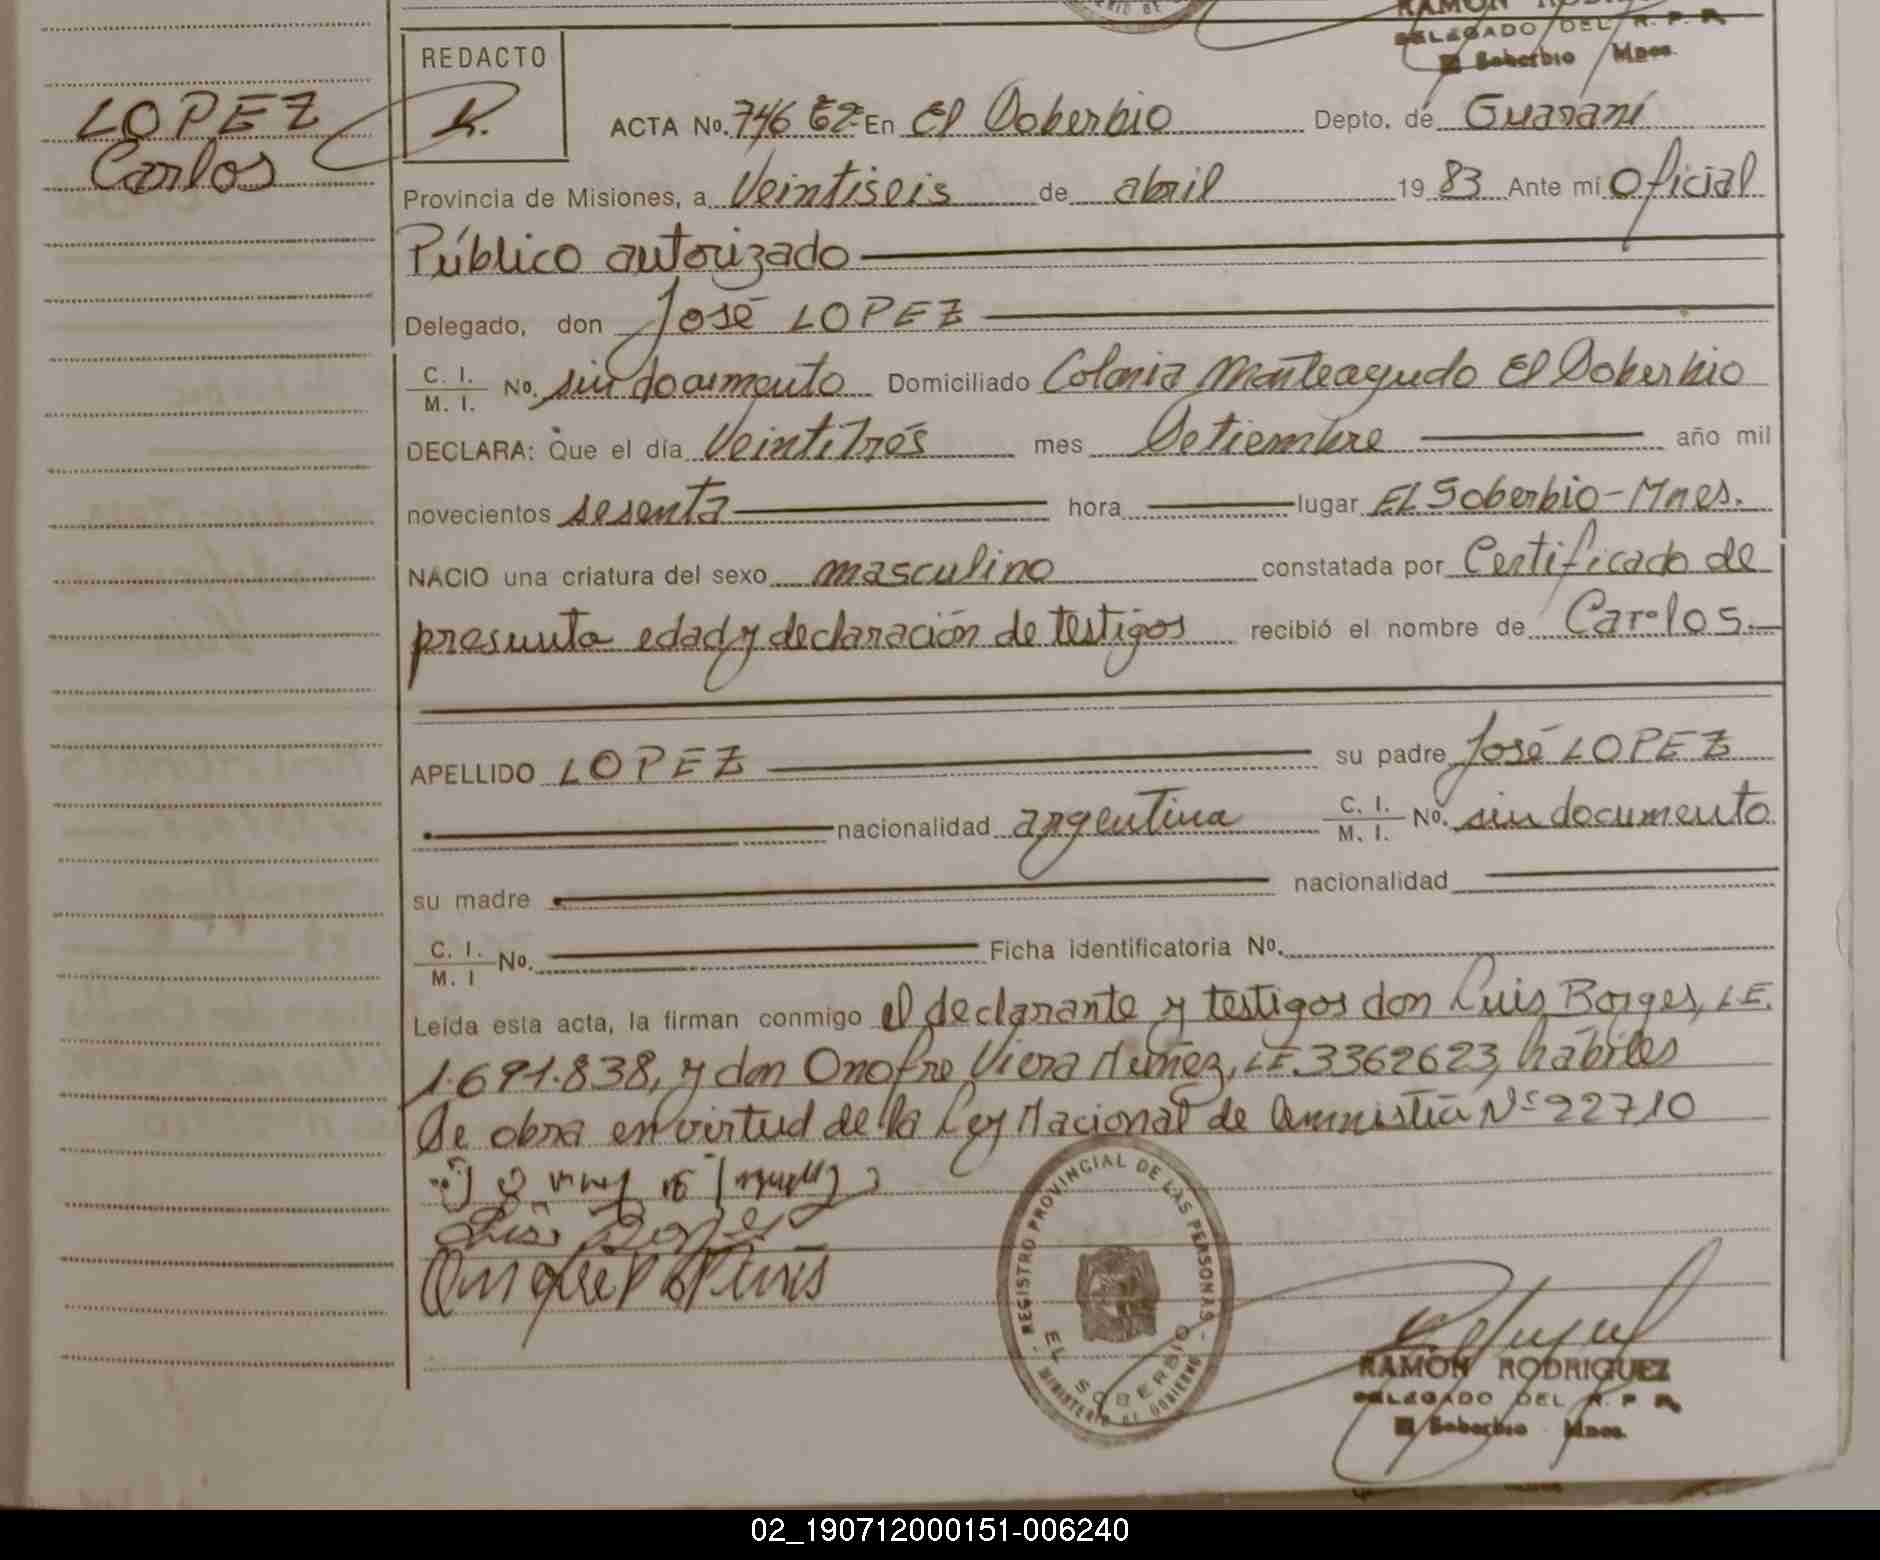 RAMON
DELEGADO DEL R. P. P.
El Soberbio Mnes.
LOPEZ
Carlos
REDACTO
ACTA No. 746 En El Soberbio Depto. de Guaraní
Provincia de Misiones, a Veintiseis de abril 1983 Ante mi Oficial
Público autorizado
Delegado, don José LOPEZ
C. I.
M. I. No. sin documento Domiciliado Colonia Monteagudo El Soberbio
DECLARA: Que el día Veintitrés mes Setiembre año mil
novecientos sesenta hora lugar EL Soberbio-Mnes.
NACIO una criatura del sexo masculino constatada por Certificado de
presunta edad y declaración de testigos recibió el nombre de Carlos.
APELLIDO LOPEZ su padre José LOPEZ
nacionalidad argentina C. I. M. I. No. sin documento
su madre nacionalidad
C. I. M. I No. Ficha identificatoria No.
Leída esta acta, la firman conmigo el declarante y testigos don Luis Borges, L.E.
1.691.838, y don Onofre Viera Nuñez, L.E. 3362623, hábiles
Se obra en virtud de la Ley Nacional de Amnistía Nº 22710
REGISTRO PROVINCIAL DE LAS PERSONAS - MINISTERIO DE GOBIERNO -
EL SOBERBIO
RAMON RODRIGUEZ
DELEGADO DEL R. P. P.
El Soberbio Mnes.
02_190712000151-006240